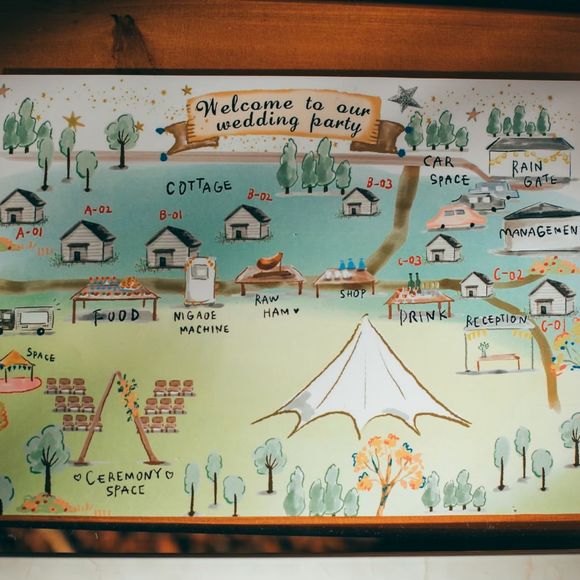 Welcome to our
wedding party
CAR
SPACE
RAIN
GATE
COTTAGE
B-03
B-02
A-02
B-01
A-01
MANAGEMEN
C-03
C-02
C-01
FOOD
NIGAOE
MACHINE
RAW
HAM♥
SHOP
DRINK
RECEPTION
SPACE
♡CEREMONY♡
SPACE